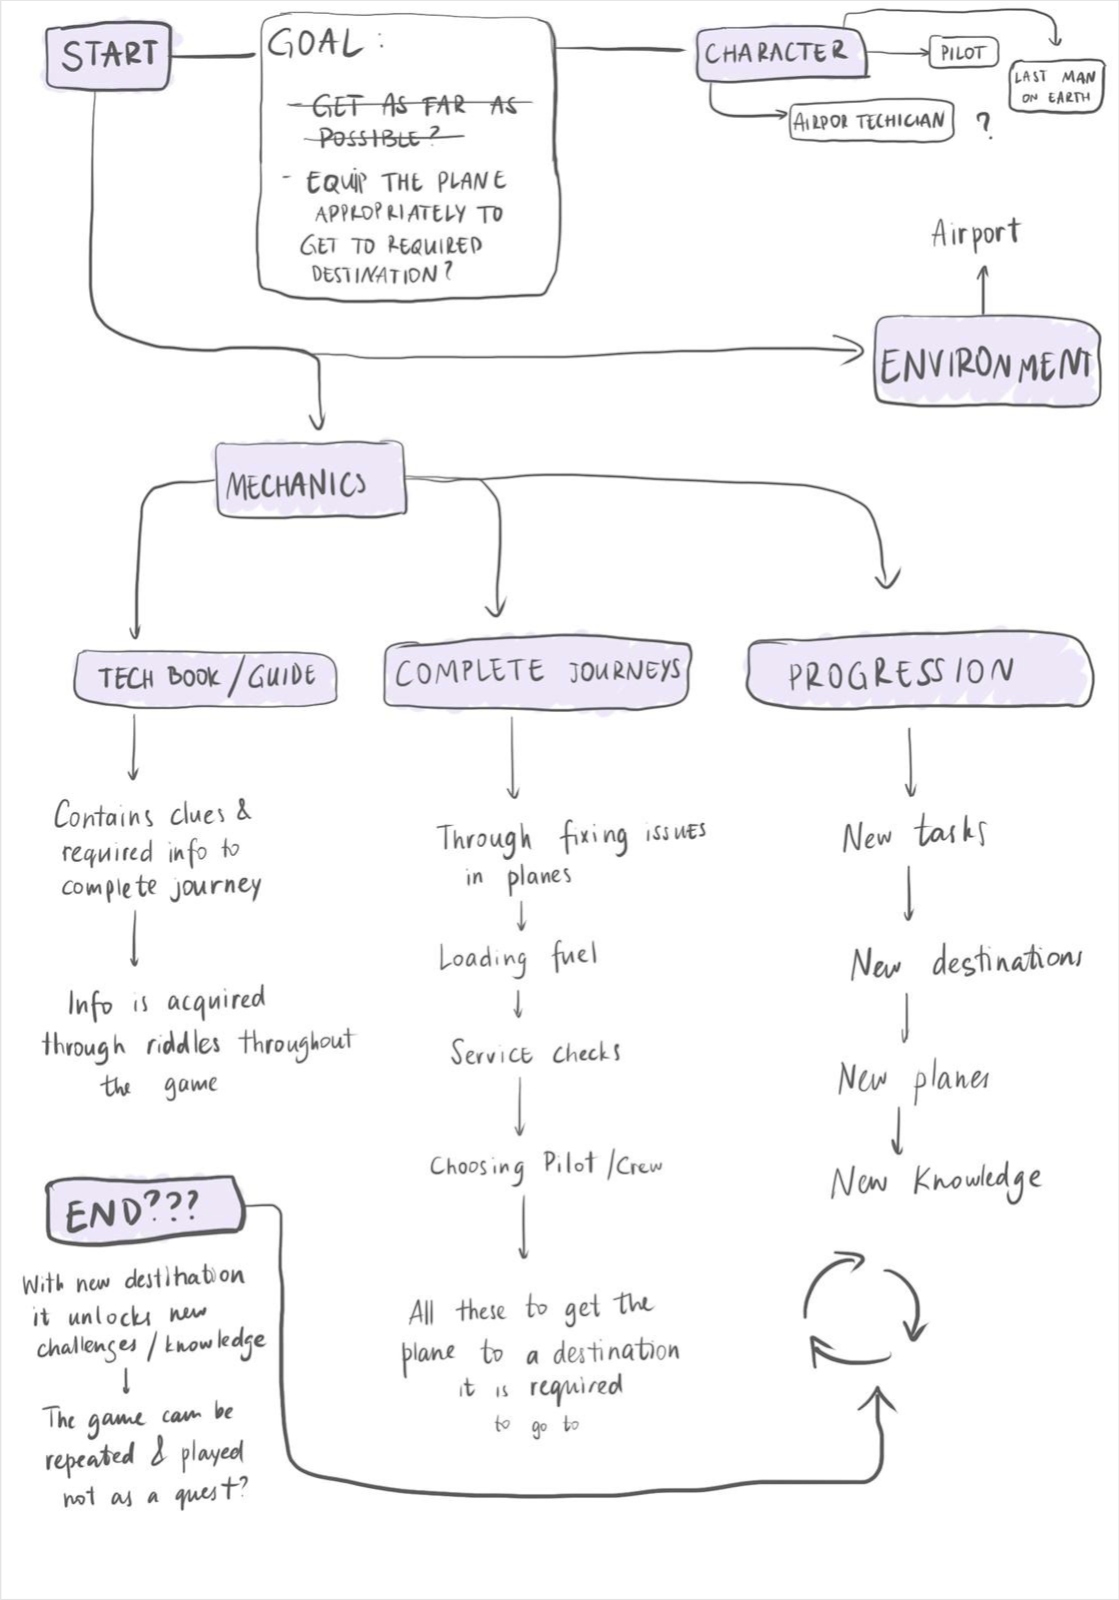 START
GOAL:
- GET AS FAR AS
POSSIBLE?
- EQUIP THE PLANE
APPROPRIATELY TO
GET TO REQUIRED
DESTINATION?
CHARACTER
PILOT
LAST MAN
ON EARTH
AIRPOR TECHICIAN ?
Airport
ENVIRONMENT
MECHANICS
TECH BOOK/GUIDE
Contains clues &
required info to
complete journey
Info is acquired
through riddles throughout
the game
COMPLETE JOURNEYS
Through fixing issues
in planes
Loading fuel
Service checks
Choosing Pilot/Crew
All these to get the
plane to a destination
it is required
to go to
PROGRESSION
New tasks
New destinations
New planes
New Knowledge
END???
With new destination
it unlocks new
challenges/knowledge
The game cam be
repeated & played
not as a quest?